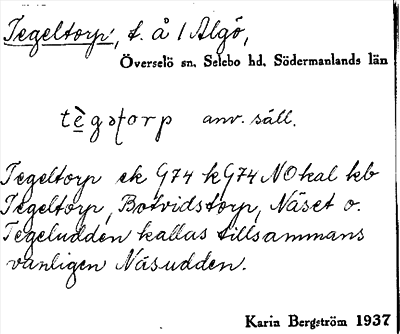 Tegeltorp, t. å 1 Algö,
Överselö sn, Selebo hd, Södermanlands län
anv. säll.
Tegeltorp ek G74 kG74 NO kal kb
Tegeltorp, Botvidstorp, Näset o.
Tegeludden kallas tillsammans
vanligen Näsudden.
Karin Bergström 1937